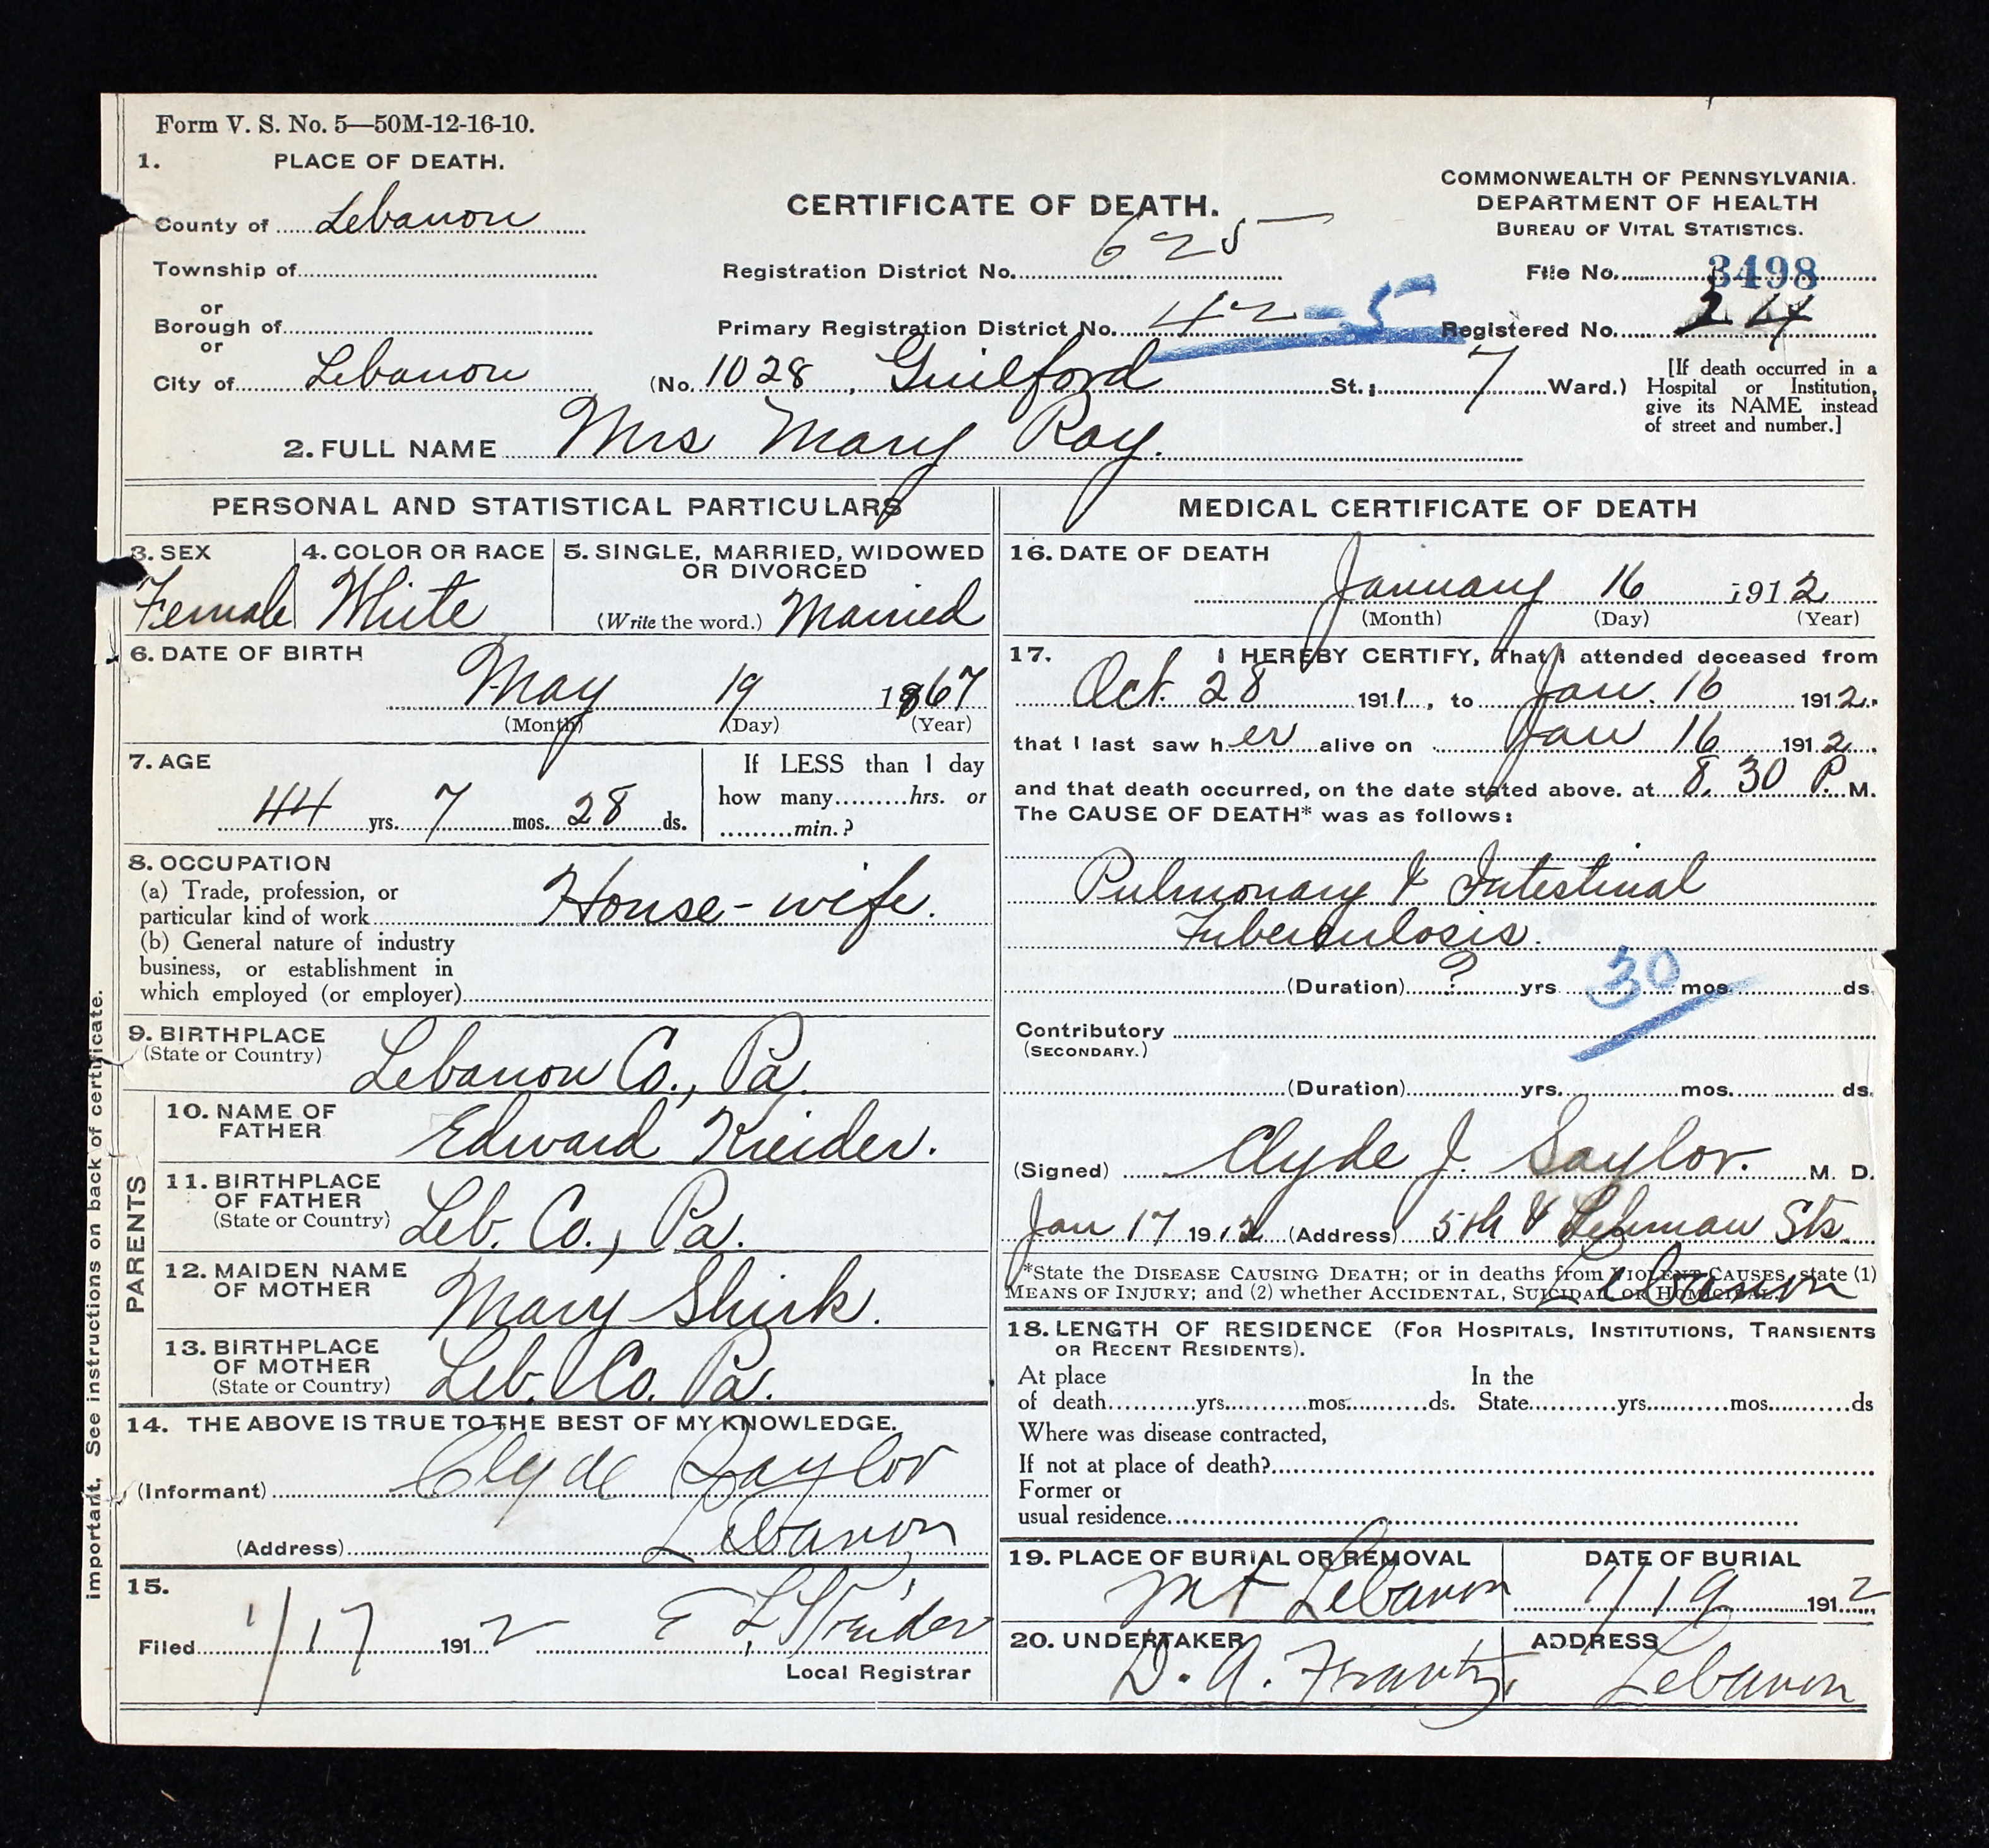 Form V. S. No. 5—50M-12-16-10.
1. PLACE OF DEATH.
County of Lebanon
Township of
or
Borough of
or
City of Lebanon
CERTIFICATE OF DEATH.
Registration District No. 625
Primary Registration District No. 42-5
(No. 1028, Guilford St.; 7 Ward.)
COMMONWEALTH OF PENNSYLVANIA.
DEPARTMENT OF HEALTH
BUREAU OF VITAL STATISTICS.
File No. 3498
Registered No.
[If death occurred in a
Hospital or Institution,
give its NAME instead
of street and number.]
2. FULL NAME Mrs Mary Ray.
PERSONAL AND STATISTICAL PARTICULARS
3. SEX
Female
4. COLOR OR RACE
White
5. SINGLE, MARRIED, WIDOWED
OR DIVORCED
(Write the word.) Married
6. DATE OF BIRTH
May 19 1867
(Month) (Day) (Year)
7. AGE
44 yrs. 7 mos. 28 ds.
If LESS than 1 day
how many hrs. or
min.?
8. OCCUPATION
(a) Trade, profession, or
particular kind of work House-wife.
(b) General nature of industry
business, or establishment in
which employed (or employer)
9. BIRTHPLACE
(State or Country) Lebanon Co., Pa.
PARENTS
10. NAME OF
FATHER Edward Kreider.
11. BIRTHPLACE
OF FATHER
(State or Country) Leb. Co., Pa.
12. MAIDEN NAME
OF MOTHER Mary Shirk.
13. BIRTHPLACE
OF MOTHER
(State or Country) Leb. Co. Pa.
14. THE ABOVE IS TRUE TO THE BEST OF MY KNOWLEDGE.
(Informant) Clyde Saylor
(Address) Lebanon
15.
Filed 1/17 1912 E L Kreider
Local Registrar
important. See instructions on back of certificate.
MEDICAL CERTIFICATE OF DEATH
16. DATE OF DEATH
January 16 1912
(Month) (Day) (Year)
17. I HEREBY CERTIFY, That I attended deceased from
Oct. 28 1911, to Jan. 16 1912.
that I last saw her alive on Jan 16 1912.
and that death occurred, on the date stated above. at 8.30 P. M.
The CAUSE OF DEATH* was as follows:
Pulmonary & Intestinal
Tuberculosis.
(Duration) ? yrs 30 mos. ds.
Contributory
(SECONDARY.)
(Duration) yrs. mos. ds.
(Signed) Clyde J. Saylor. M. D.
Jan 17 1912 (Address) 5th & Lehman Sts.
Lebanon
*State the DISEASE CAUSING DEATH; or in deaths from VIOLENT CAUSES, state (1)
MEANS OF INJURY; and (2) whether ACCIDENTAL, SUICIDAL OR HOMICIDAL.
18. LENGTH OF RESIDENCE (FOR HOSPITALS, INSTITUTIONS, TRANSIENTS
OR RECENT RESIDENTS).
At place In the
of death yrs. mos. ds. State yrs. mos. ds
Where was disease contracted,
If not at place of death?
Former or
usual residence
19. PLACE OF BURIAL OR REMOVAL
Mt Lebanon
DATE OF BURIAL
1/19 1912
20. UNDERTAKER
D. A. Frantz,
ADDRESS
Lebanon